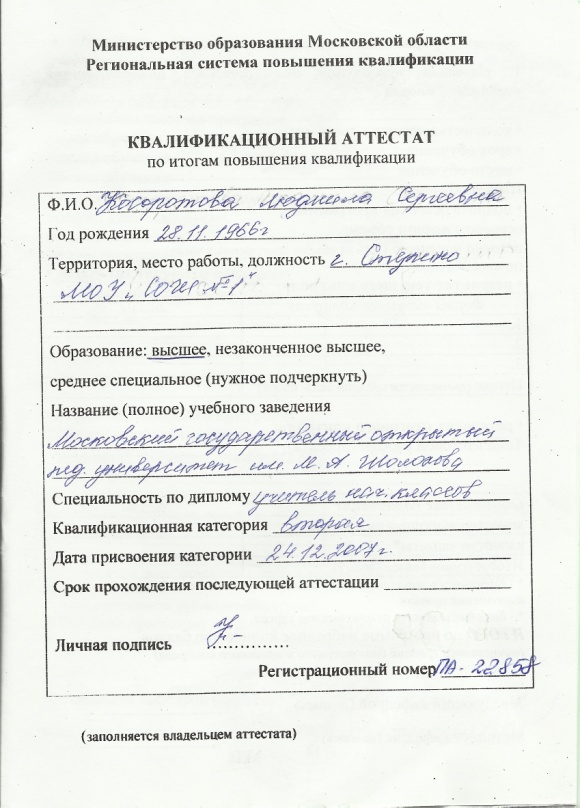 Министерство образования Московской области
Региональная система повышения квалификации
КВАЛИФИКАЦИОННЫЙ АТТЕСТАТ
по итогам повышения квалификации
Ф.И.О. Косоротова Людмила Сергеевна
Год рождения 28.11.1966г
Территория, место работы, должность г. Ступино
МОУ „СОШ №1"
Образование: высшее, незаконченное высшее,
среднее специальное (нужное подчеркнуть)
Название (полное) учебного заведения
Московский государственный открытый
пед. университет им. М. А. Шолохова
Специальность по диплому учитель нач. классов
Квалификационная категория вторая
Дата присвоения категории 24.12.2007г.
Срок прохождения последующей аттестации
Личная подпись
Регистрационный номер ПА-22858
(заполняется владельцем аттестата)